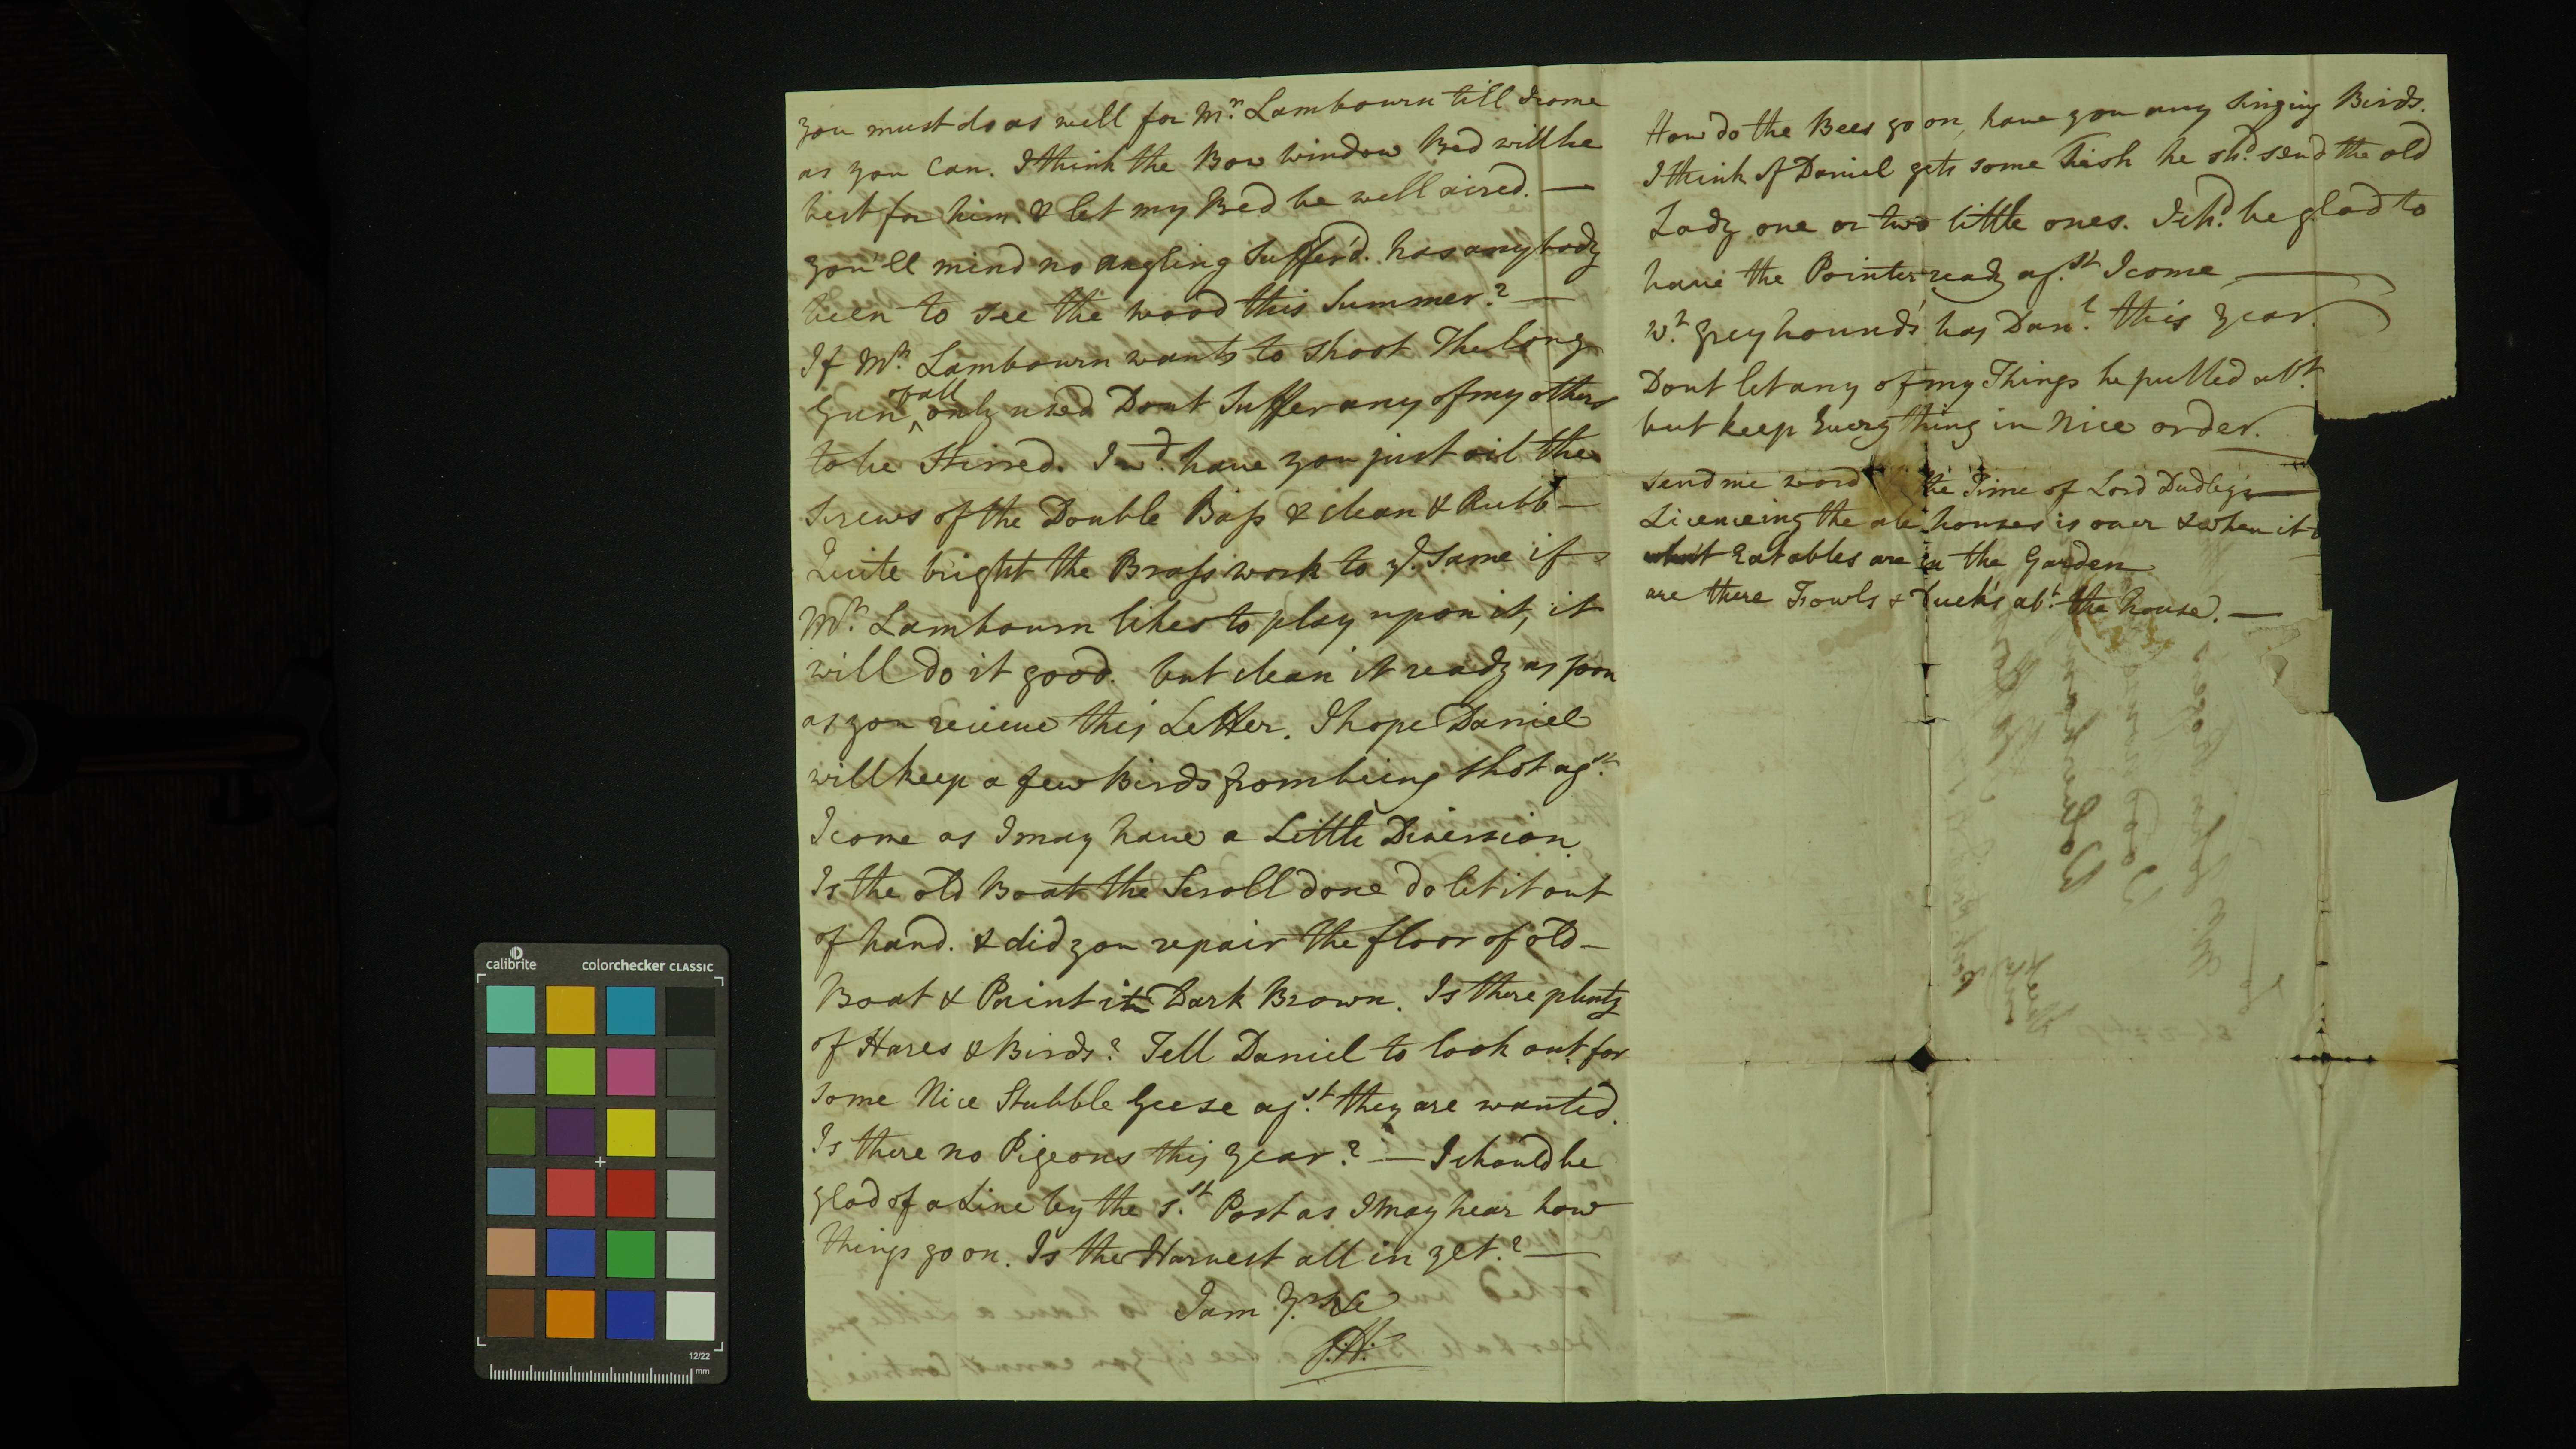 you must do as well for Mr. Lambourn till I come
as you can. I think the Bow window Bed will be
best for him. & let my Bed be well aired. —
you'll mind no angling Suffer'd. has any body
been to see the wood this Summer? —
If Mr. Lambourn wants to shoot The long
Gun of all only used Dont Suffer any of my others
to be Stirred. I wd. have you just oil the
Screws of the Double Bass & clean & Rubb —
Quite bright the Brass work to ye. Same if
Mr. Lambourn likes to play upon it, it
will do it good. but clean it ready as soon
as you recieve this Letter. I hope Daniel
will keep a few Birds from being shot agst.
I come as I may have a Little Diversion.
Is the old Boat the Scroll done do let it out
of hand. & did you repair the floor of old —
Boat & Paint it Dark Brown. Is there plenty
of Hares & Birds? Tell Daniel to look out for
some Nice Stubble Geese agst. they are wanted.
Is there no Pigeons this year? — I should be
glad of a Line by the 1st. Post as I may hear how
things go on. Is the Harvest all in yet.? —
I am Yrs &c
J.H.
How do the Bees go on, have you any Singing Birds.
I think if Daniel gets some Fish he shd. send the old
Lady one or two little ones. I shd. be glad to
have the Pointer ready agst. I come —
wt. greyhounds has Danl. this year.
Dont let any of my Things be pulled abt.
but keep Every thing in Nice order.
send me word the Time of Lord Dudley's —
Licenceing the ale houses is over & when it
what Eatables are in the Garden
are there Fowls & Ducks abt. the house. —
calibrite colorchecker CLASSIC
12/22
mm